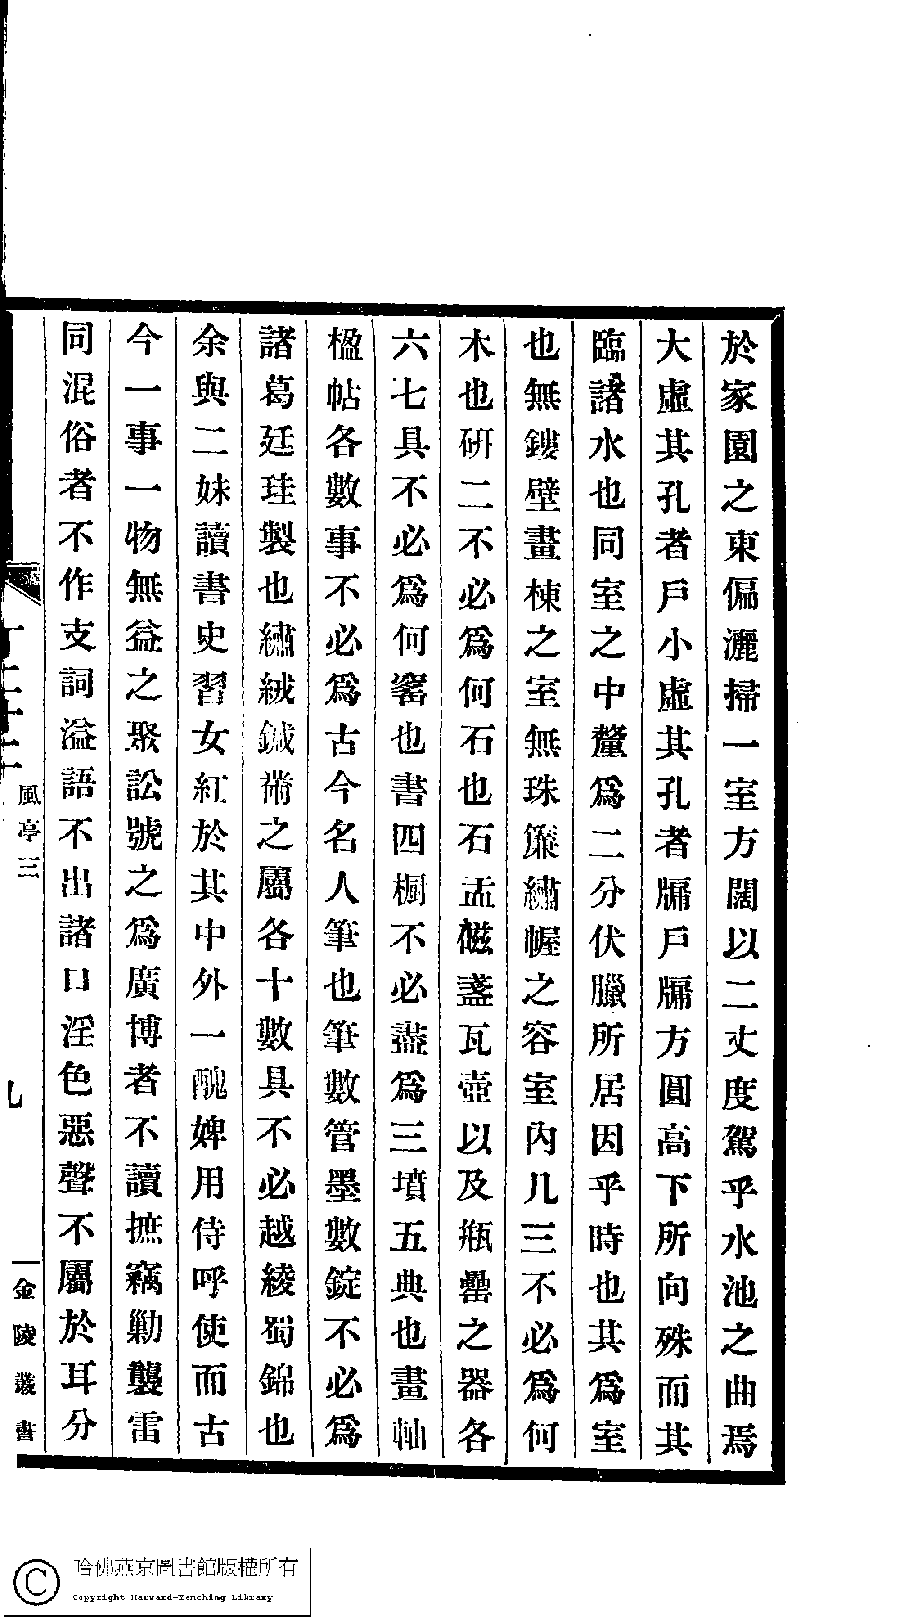 於家園之東偏灑掃一室方闊以二丈度駕乎水池之曲焉
大虛其孔者戶小虛其孔者牖戶牖方圓高下所向殊而其
臨諸水也同室之中釐爲二分伏臘所居因乎時也其爲室
也無鏤壁畫棟之室無珠簾繡幄之容室內几三不必爲何
木也硏二不必爲何石也石盂磁盞瓦壺以及瓶罍之器各
六七具不必爲何窰也書四橱不必盡爲三墳五典也畫軸
楹帖各數事不必爲古今名人筆也筆數管墨數錠不必爲
諸葛廷珪製也繡絨鍼黹之屬各十數具不必越綾蜀錦也
余與二妹讀書史習女紅於其中外一醜婢用侍呼使而古
今一事一物無益之聚訟號之爲廣博者不讀摭竊勦襲雷
同混俗者不作支詞溢語不出諸口淫色惡聲不屬於耳分
風亭三
九
金陵叢書
哈佛燕京圖書館版權所有
Copyright Harvard-Yenching Library